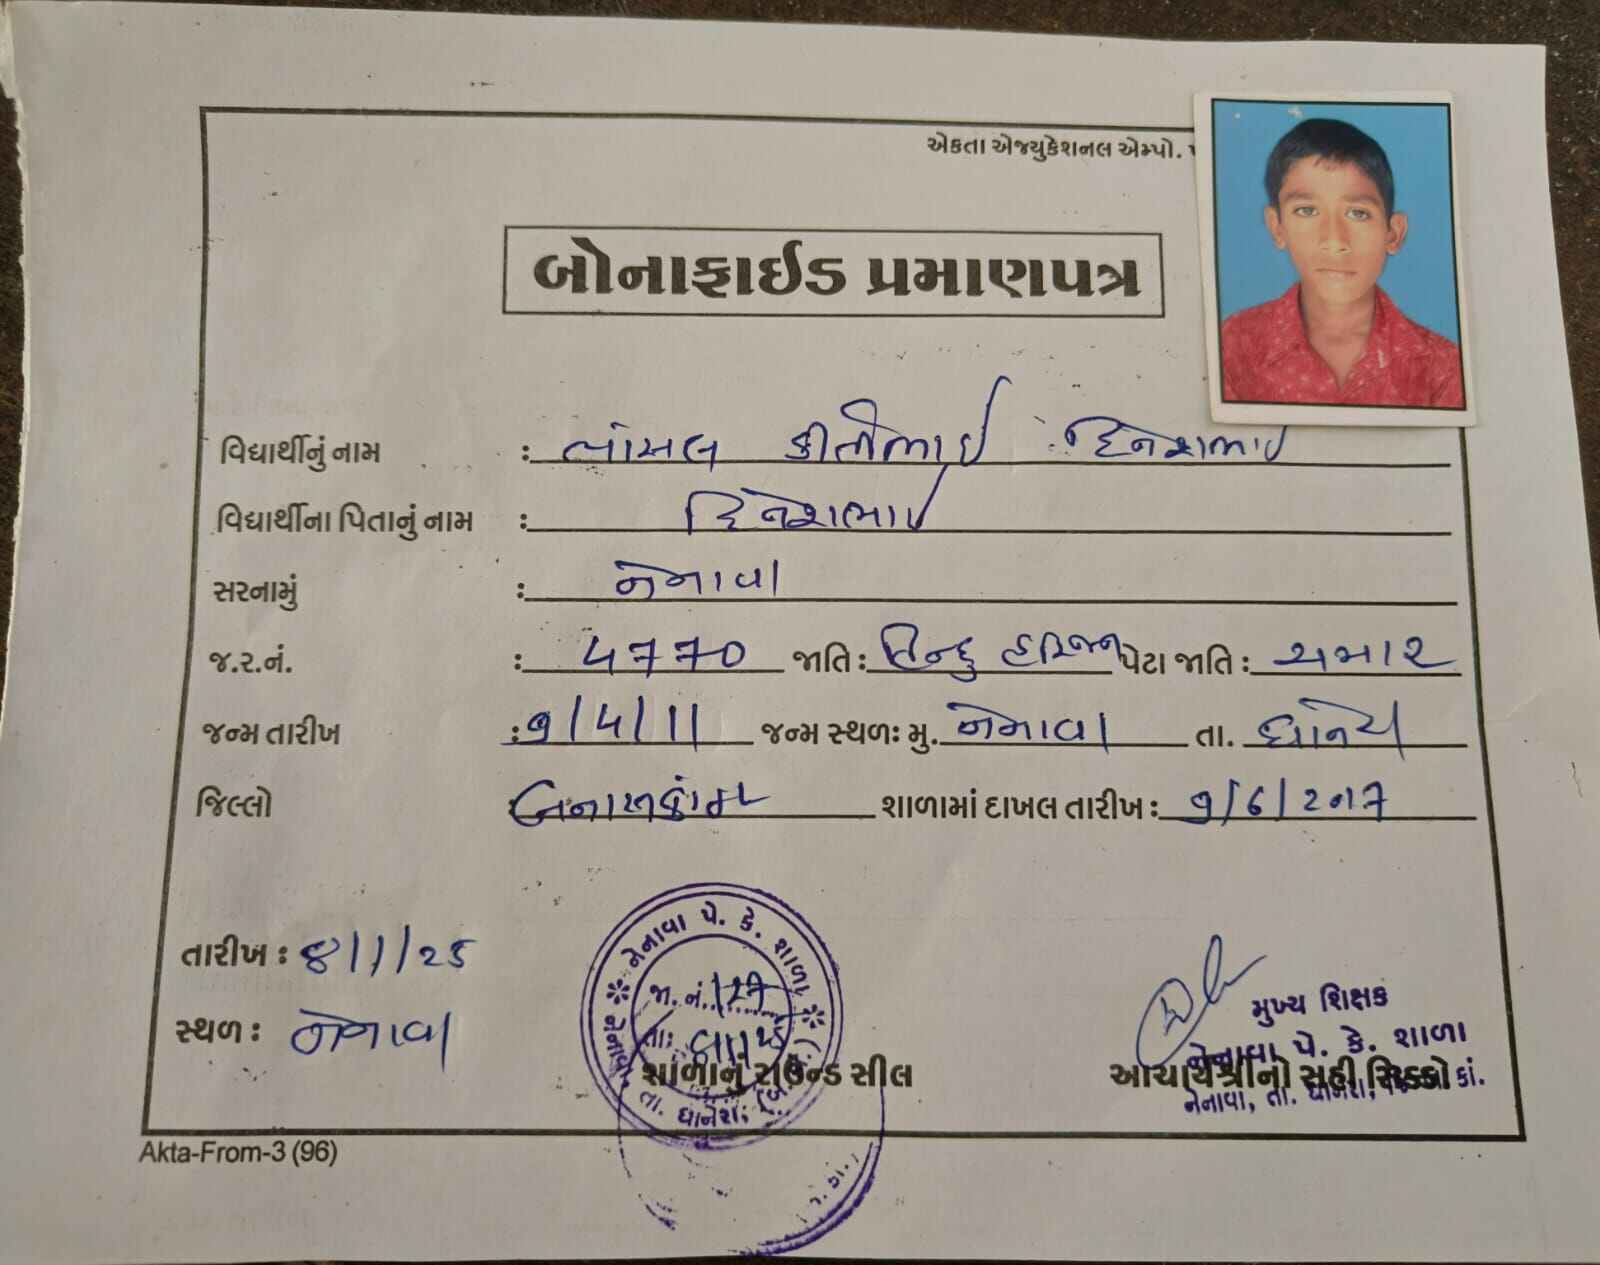 એકતા એજ્યુકેશનલ એમ્પો.
બોનાફાઈડ પ્રમાણપત્ર
વિદ્યાર્થીનું નામ : દિનેશભાઈ
વિદ્યાર્થીના પિતાનું નામ : દિનેશભાઈ
સરનામું : નેનાવા
જ.ર.નં. : ૫૭૭૦ જાતિ : હિન્દુ હરિજન પેટા જાતિ : ચમાર
જન્મ તારીખ : ૧/૫/11 જન્મ સ્થળઃ મુ. નેનાવા તા. ધાનેરા
જિલ્લો બનાસકાંઠા શાળામાં દાખલ તારીખ : ૧/૬/૨૦૧૭
તારીખ : ૪/1/૨૫
સ્થળ : નેનાવા
નેનાવા પે. કે. શાળા
જા. નં. 127
તા:
તા. ધાનેરા,
શાળાનું રાઉન્ડ સીલ
મુખ્ય શિક્ષક
નેનાવા પે. કે. શાળા
નેનાવા, તા. ધાનેરા,
આચાર્યશ્રીનો સહી સિક્કો
Akta-From-3 (96)